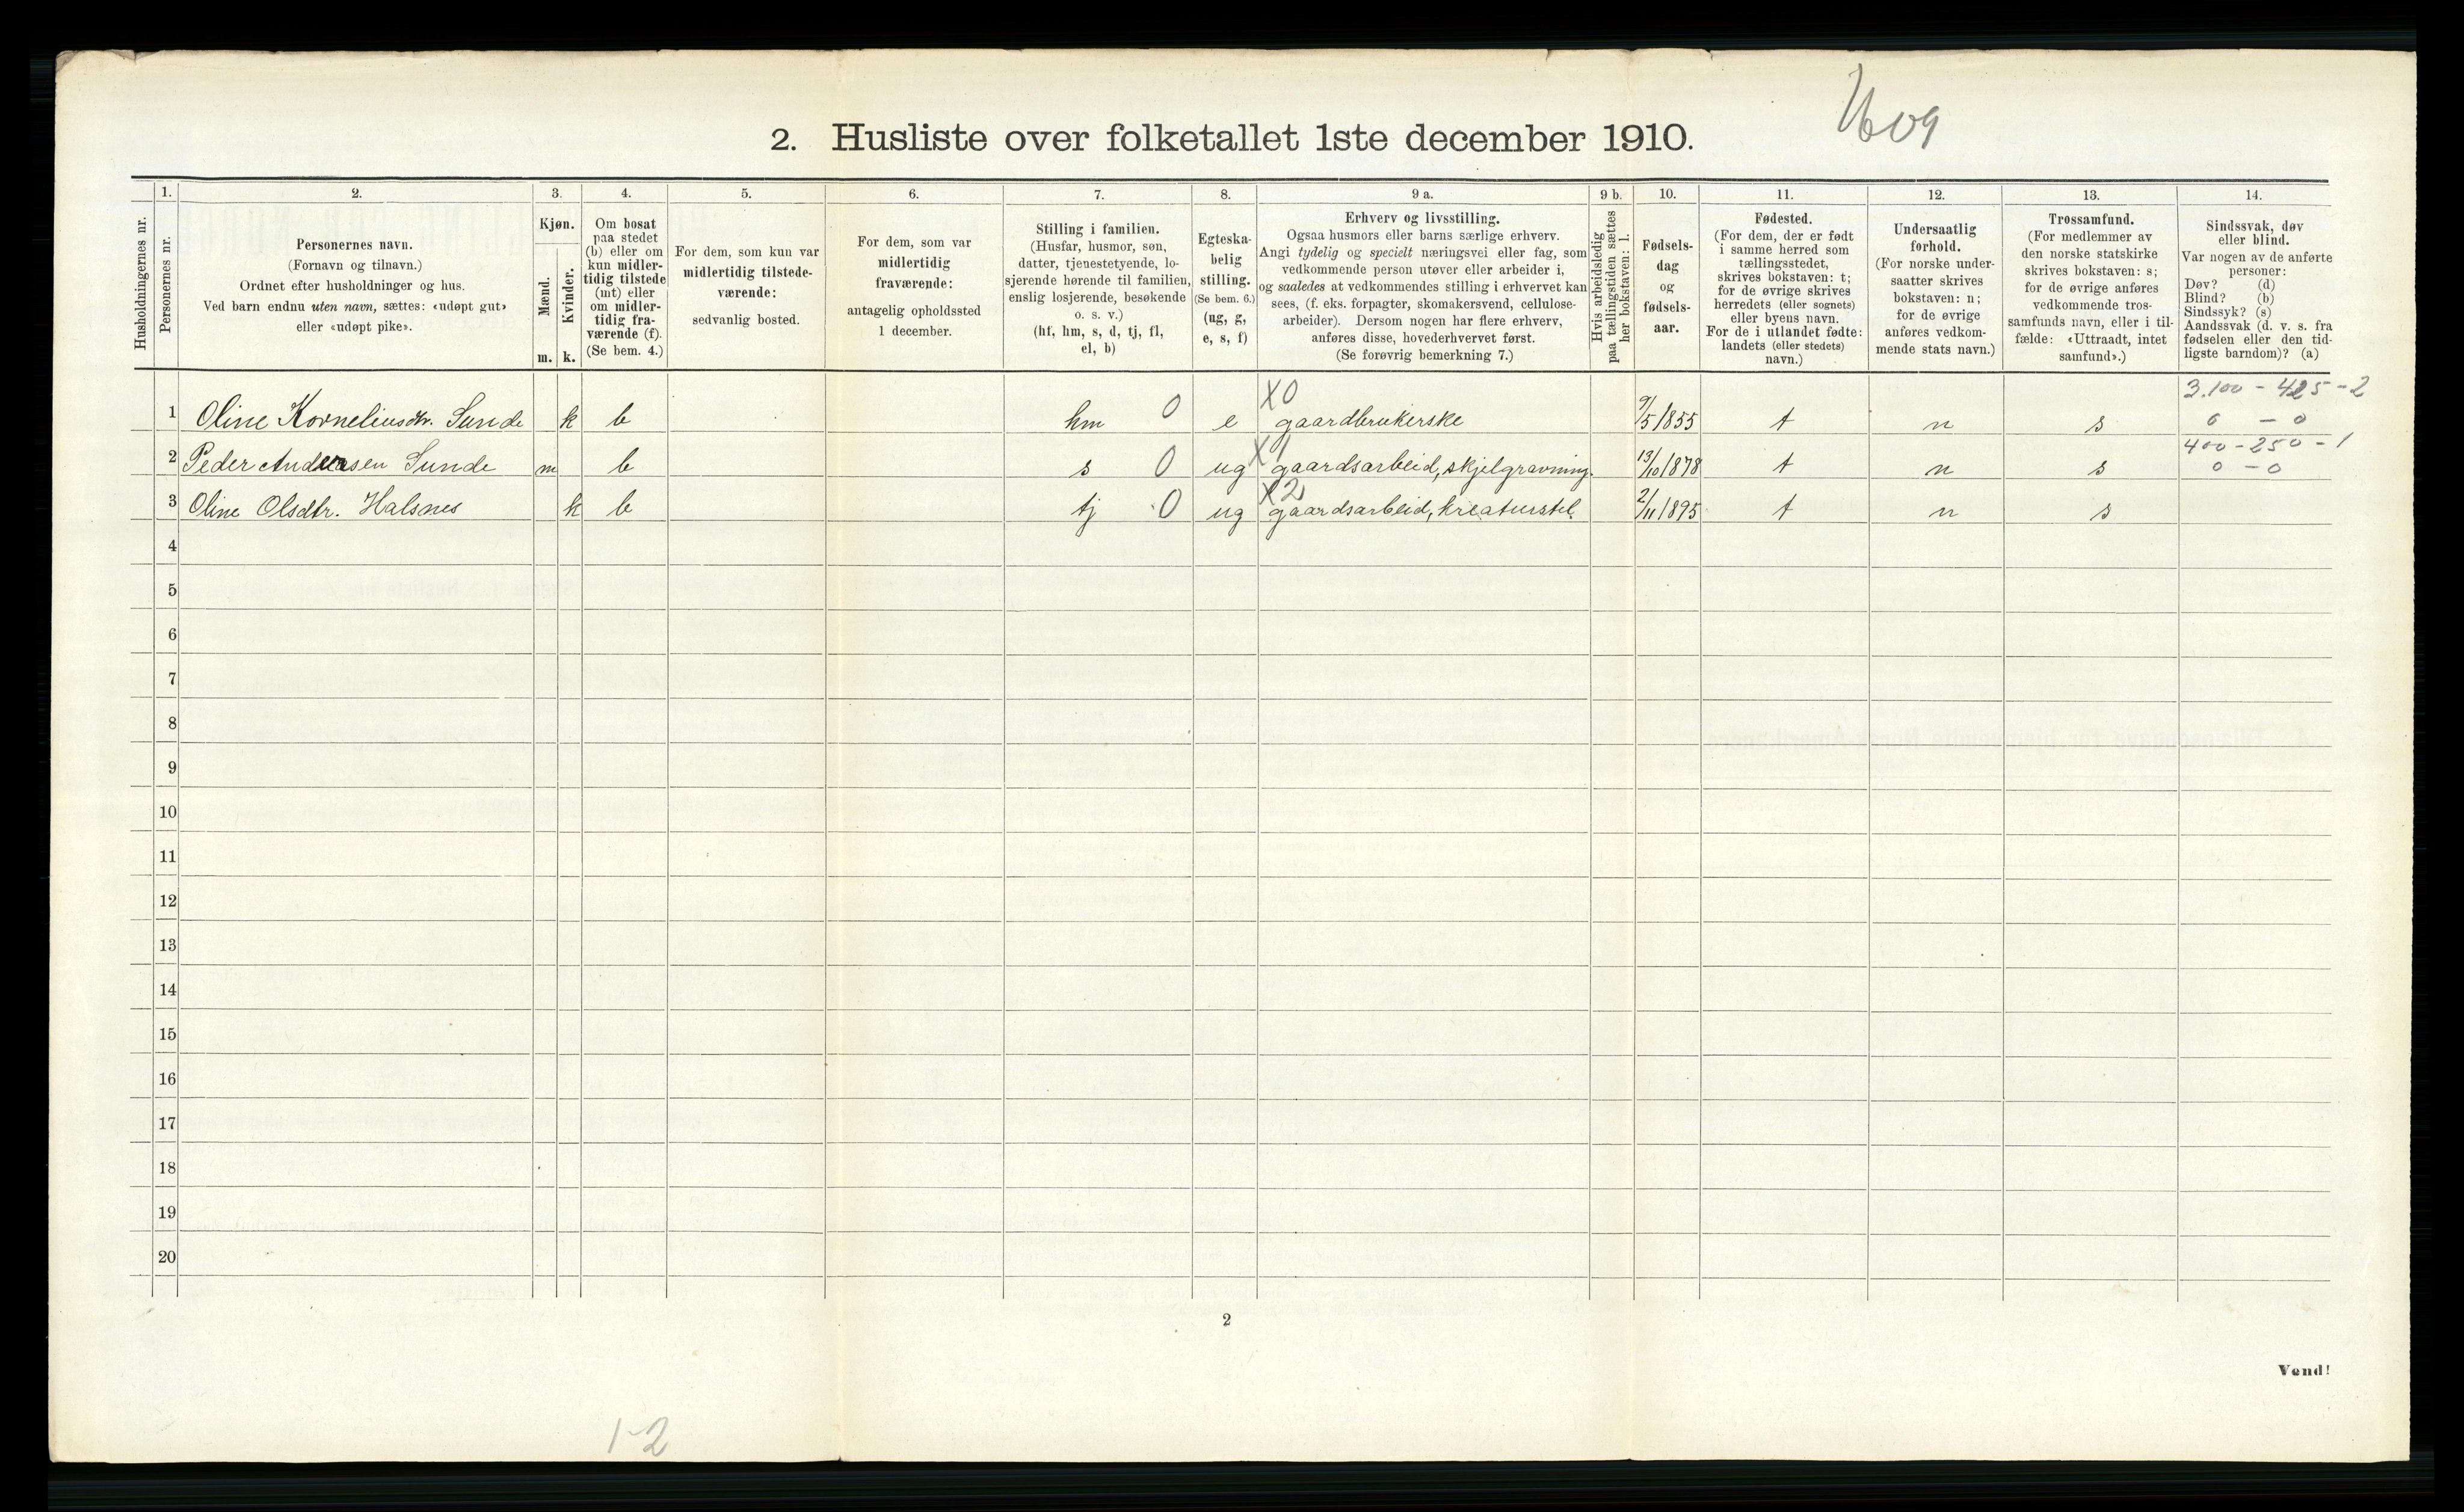 2. Husliste over folketallet 1ste december 1910.
1.
2.
3.
4.
5.
6.
7.
8.
9 a.
9 b.
10.
11.
12.
13.
14.
Husholdningernes nr.
Personernes nr.
Personernes navn.
(Fornavn og tilnavn.)
Ordnet efter husholdninger og hus.
Ved barn endnu uten navn, sættes: «udøpt gut»
eller «udøpt pike».
Kjøn.
Mænd.
m.
Kvinder.
k.
Om bosat
paa stedet
(b) eller om
kun midler-
tidig tilstede
(mt) eller
om midler-
tidig fra-
værende (f).
(Se bem. 4.)
For dem, som kun var
midlertidig tilstede-
værende:
sedvanlig bosted.
For dem, som var
midlertidig
fraværende:
antagelig opholdssted
1 december.
Stilling i familien.
(Husfar, husmor, søn,
datter, tjenestetyende, lo-
sjerende hørende til familien,
enslig losjerende, besøkende
o. s. v.)
(hf, hm, s, d, tj, fl,
el, b)
Egteska-
belig
stilling.
(Se bem. 6.)
(ug, g,
e, s, f)
Erhverv og livsstilling.
Ogsaa husmors eller barns særlige erhverv.
Angi tydelig og specielt næringsvei eller fag, som
vedkommende person utøver eller arbeider i,
og saaledes at vedkommendes stilling i erhvervet kan
sees, (f. eks. forpagter, skomakersvend, cellulose-
arbeider). Dersom nogen har flere erhverv,
anføres disse, hovederhvervet først.
(Se forøvrig bemerkning 7.)
Hvis arbeidsledig
paa tællingstiden sættes
her bokstaven: l.
Fødsels-
dag
og
fødsels-
aar.
Fødested.
(For dem, der er født
i samme herred som
tællingsstedet,
skrives bokstaven: t;
for de øvrige skrives
herredets (eller sognets)
eller byens navn.
For de i utlandet fødte:
landets (eller stedets)
navn.)
Undersaatlig
forhold.
(For norske under-
saatter skrives
bokstaven: n;
for de øvrige
anføres vedkom-
mende stats navn.)
Trossamfund.
(For medlemmer av
den norske statskirke
skrives bokstaven: s;
for de øvrige anføres
vedkommende tros-
samfunds navn, eller i til-
fælde: «Uttraadt, intet
samfund».)
Sindssvak, døv
eller blind.
Var nogen av de anførte
personer:
Døv? (d)
Blind? (b)
Sindssyk? (s)
Aandssvak (d. v. s. fra
fødselen eller den tid-
ligste barndom)? (a)
3.100 - 425 - 2
1 Oline Korneliusdtr. Sunde k b hm 0 e X0 gaardbrukerske 9/5 1855 t n s 0 - 0
400 - 250 - 1
2 Peder Andersen Sunde m b s 0 ug X1 gaardsarbeid, skjelgravning. 13/10 1878 t n s 0 - 0
3 Oline Olsdtr. Halsnes k b tj 0 ug X2 gaardsarbeid, kreaturstel. 2/11 1895 t n s
4
5
6
7
8
9
10
11
12
13
14
15
16
17
18
19
20
2
Vend!
1-2